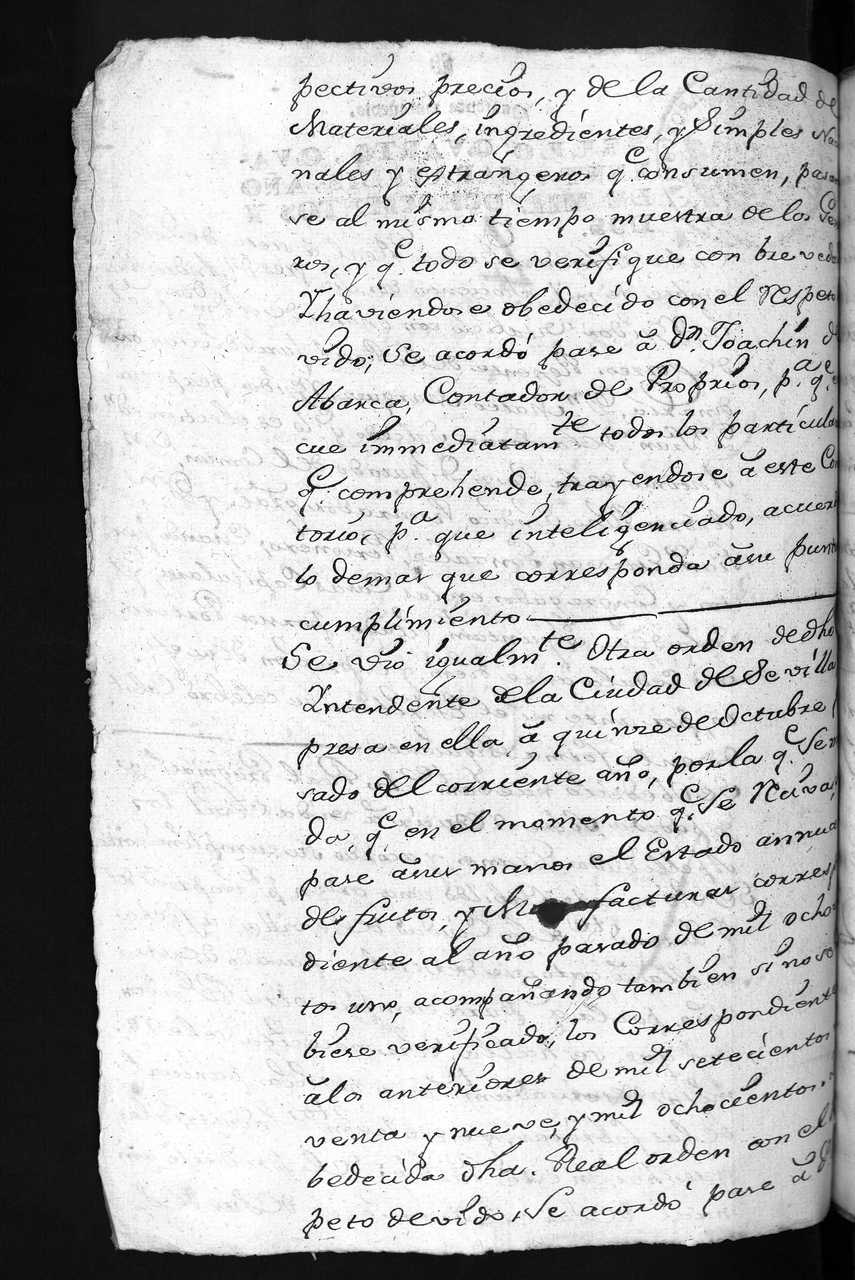 pectivos precios, y de la Cantidad de
Materiales, ingredientes, y Simples Na
nales y estrangeros q.e consumen, pasan
se al mismo tiempo muestra de los Ge
ros, y q.e todo se verifique con brevedad
Y haviendose obedecido con el respeto
vido, Se acordó pase à d.n Joachin de
Abarca, Contador de Proprios, p.a q.e
cue immediatam.te todos los particular
q.e comprehende, trayendose à este Con
torio, p.a que inteligenciado, acuerd
lo demas que corresponda àsu punt
cumplimiento
Se vio igualm.te Otra orden de dho
Yntendente de la Ciudad de Sevilla
presa en ella à quinze de Octubre p
sado del corriente año, por la q.e Se m
da, q.e en el momento q.e Se reciva,
pase àsus manos el Estado annua
de frutos, y M facturas corresp
diente al año pasado de mil ocho
tos uno, acompañando tambien si no se
biese verificado, los Correspondiente
àlos anteriores de mil setecientos
venta y nueve, y mil ochocientos
bedecida dha. Real orden con el
peto devido, Se acordó pase à